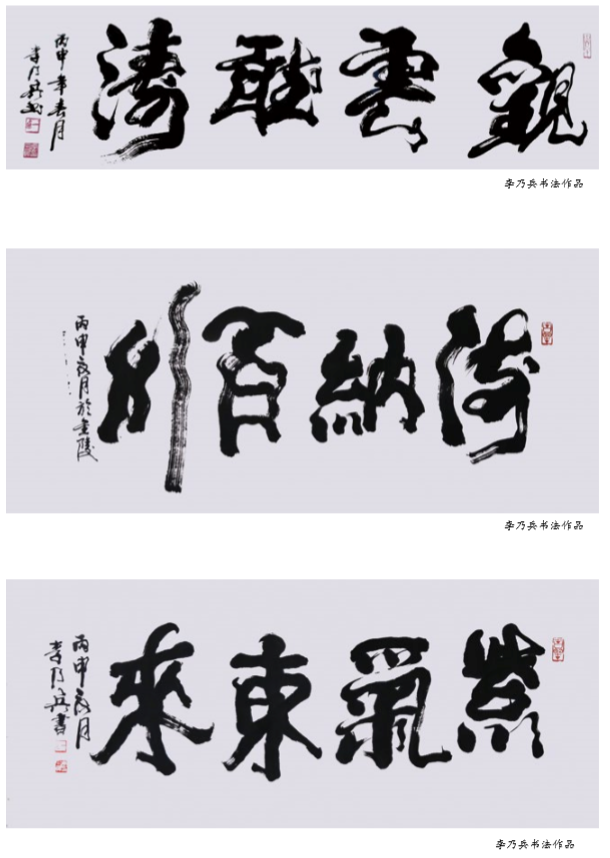 觀雲濤
丙申年春月
李乃兵書
李乃兵书法作品
海納百川
丙申夏月於金陵
李乃兵书法作品
紫氣東來
丙申夏月
李乃兵書
李乃兵书法作品